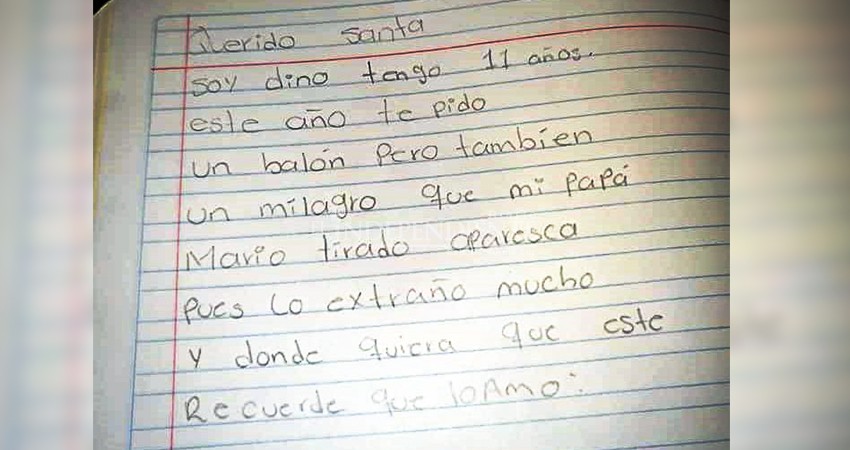 Querido santa
soy dino tengo 11 años.
este año te pido
un balón pero tambien
un milagro que mi papá
Mario tirado aparesca
pues lo extraño mucho
y donde quiera que este
Recuerde que loAmo: